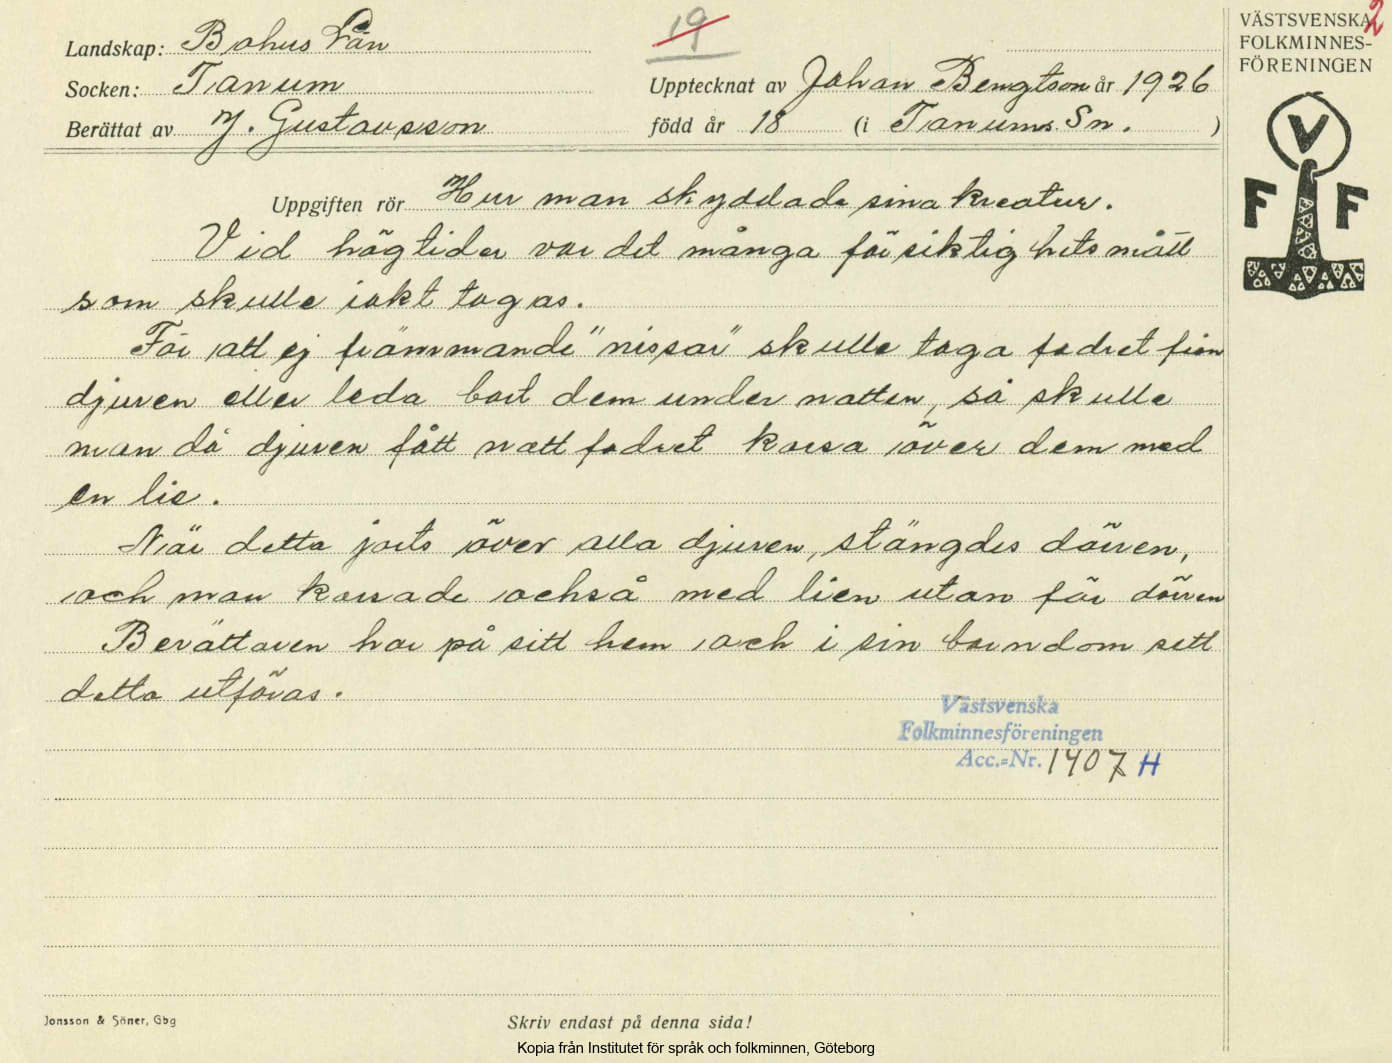 19
2
Landskap: Bohus Län
Socken: Tanum
Upptecknat av Johan Bengtson år 1926
Berättat av J. Gustavsson
född år 18 (i Tanums Sn. )
VÄSTSVENSKA
FOLKMINNES-
FÖRENINGEN
V
F F
Uppgiften rör Hur man skyddade sina kreatur.
Vid högtider var det många försiktighetsmått
som skulle iakttagas.
För att ej främmande "nissar" skulle taga fodret från
djuren eller leda bort dem under natten, så skulle
man då djuren fått nattfodret korsa över dem med
en lie.
När detta jorts över alla djuren, stängdes dörren,
och man korsade också med lien utanför dörren
Berättaren har på sitt hem och i sin barndom sett
detta utföras.
Västsvenska
Folkminnesföreningen
Acc.-Nr. 1407 H
Jonsson & Söner, Gbg
Skriv endast på denna sida!
Kopia från Institutet för språk och folkminnen, Göteborg